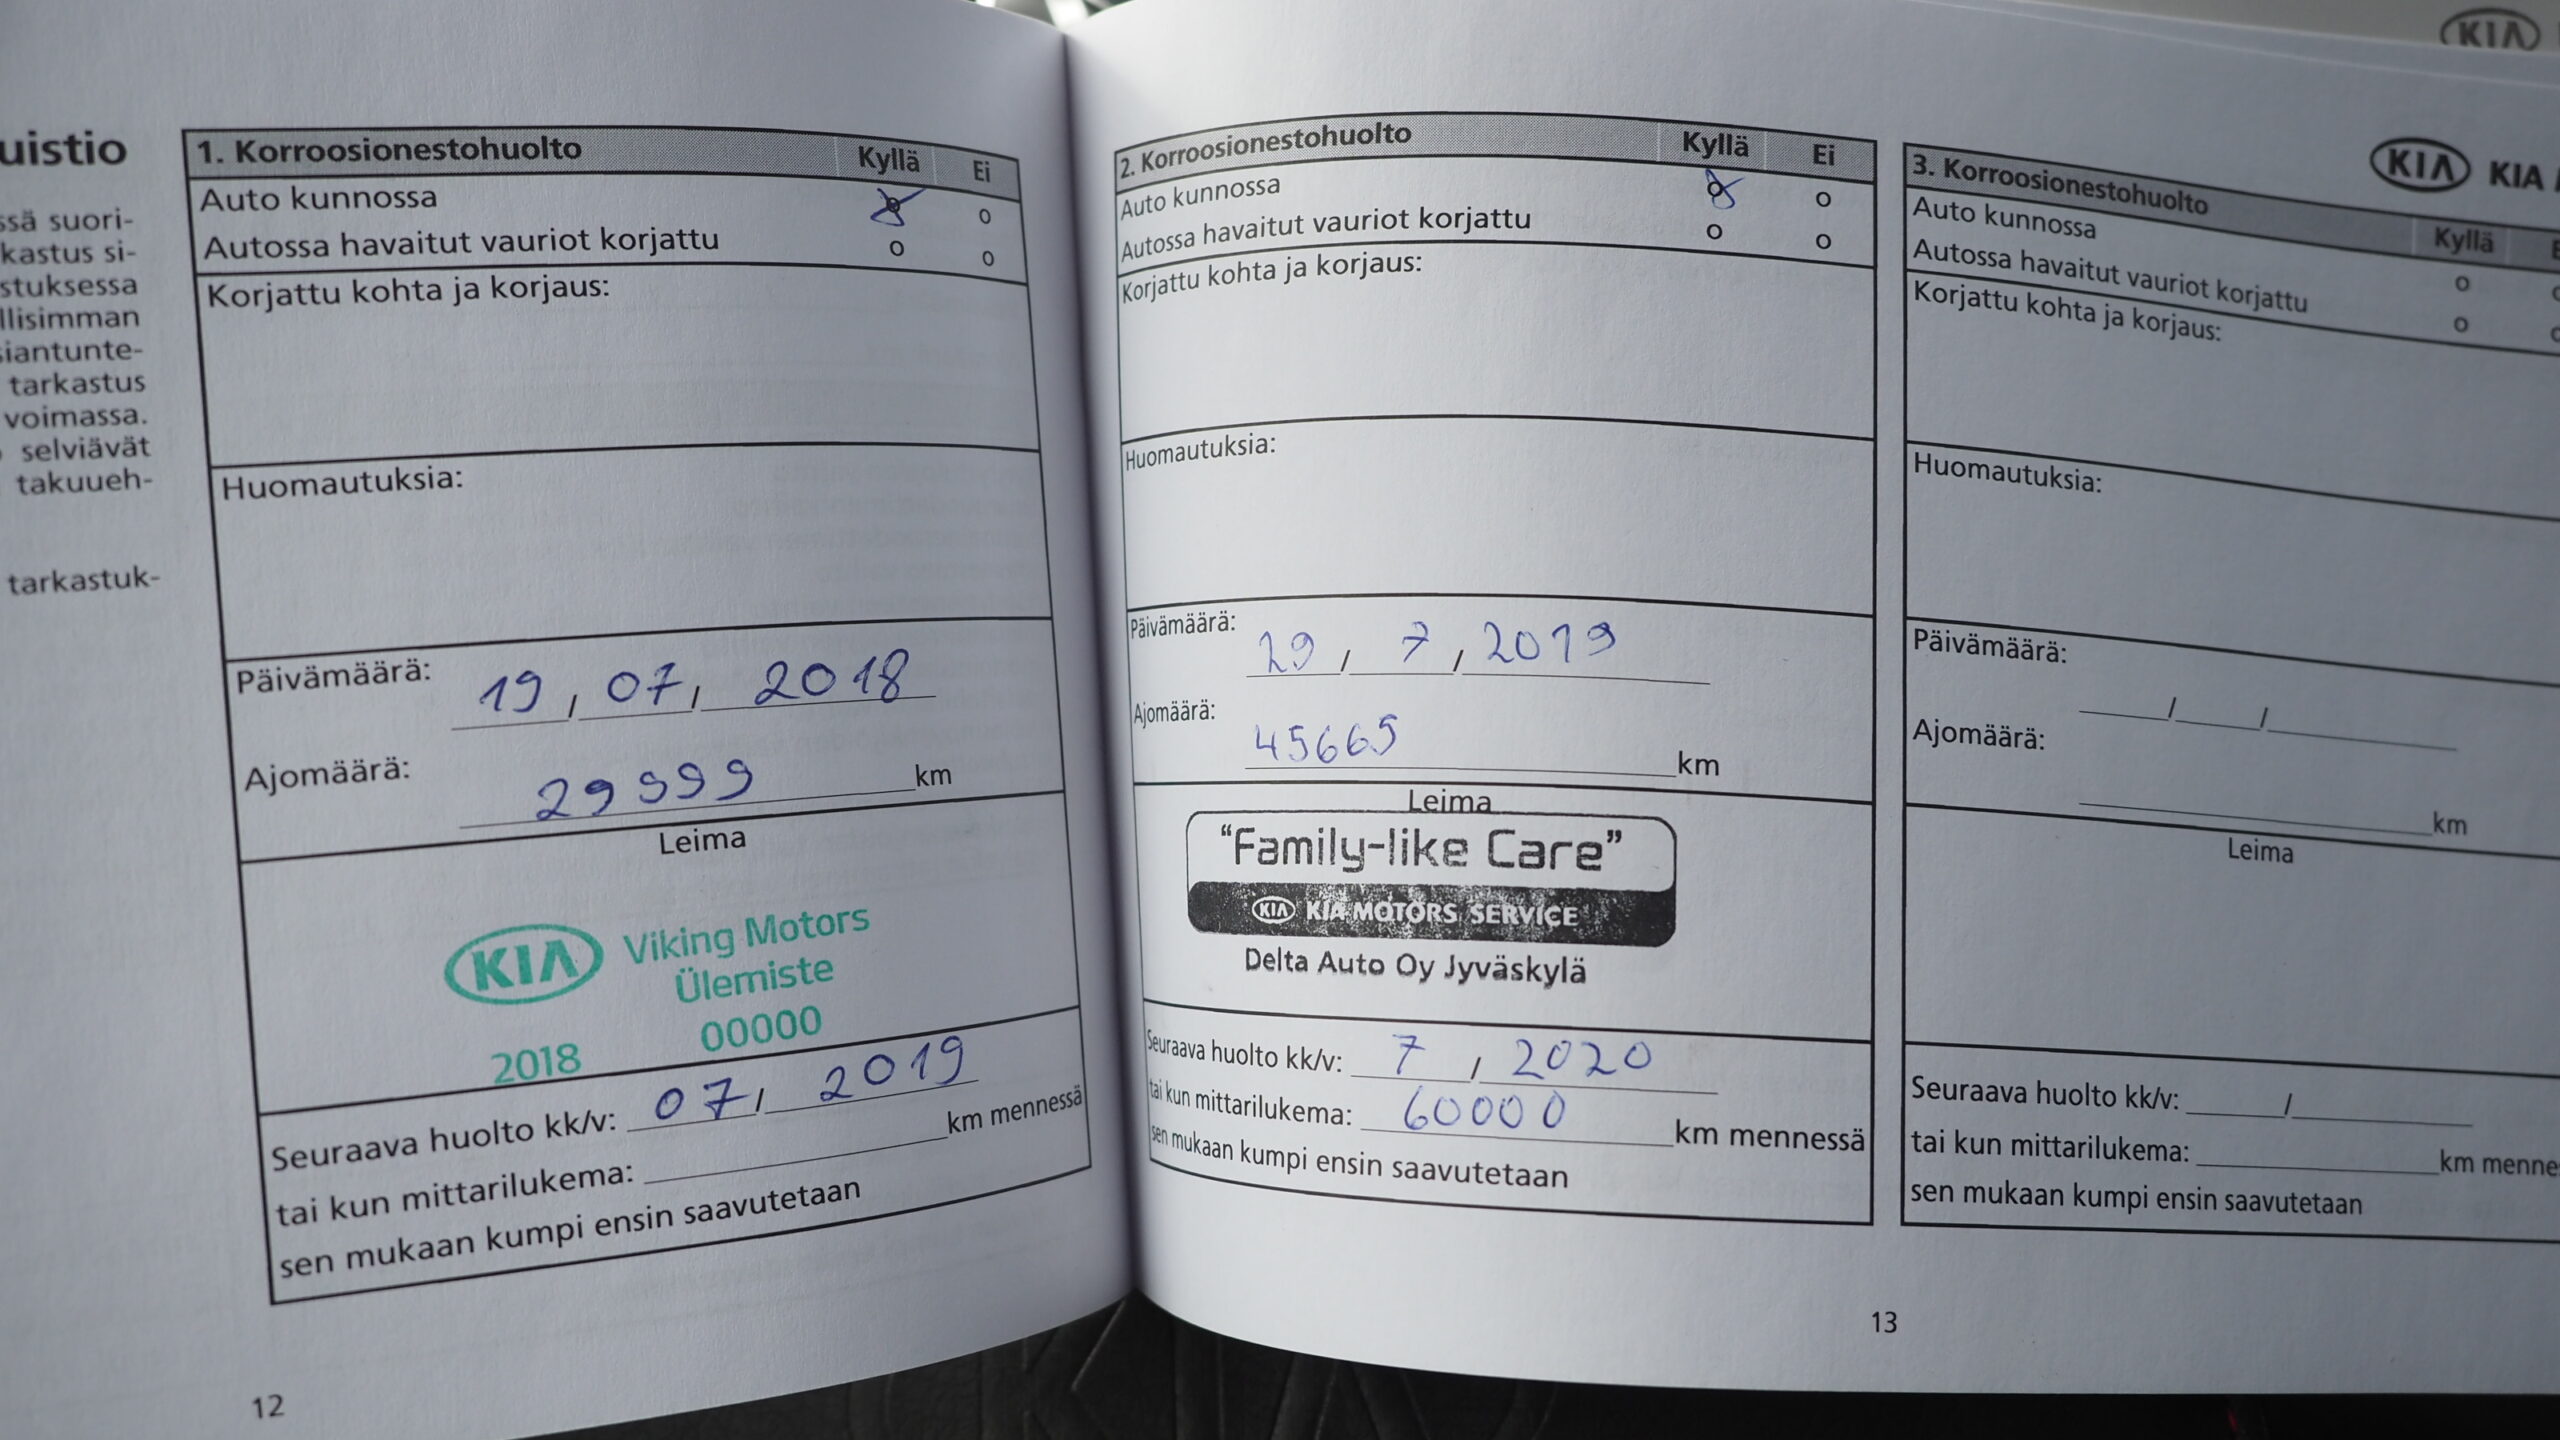 uistio
ssä suori-
kastus si-
stuksessa
llisimman
siantunte-
tarkastus
voimassa.
selviävät
takuueh-
tarkastuk-
1. Korroosionestohuolto Kyllä Ei
Auto kunnossa o o
Autossa havaitut vauriot korjattu o o
Korjattu kohta ja korjaus:
Huomautuksia:
Päivämäärä: 19 / 07 / 2018
Ajomäärä: 29999 km
Leima
KIA Viking Motors
Ülemiste
00000
2018
Seuraava huolto kk/v: 07 / 2019
tai kun mittarilukema: km mennessä
sen mukaan kumpi ensin saavutetaan
12
2. Korroosionestohuolto Kyllä Ei
Auto kunnossa o o
Autossa havaitut vauriot korjattu o o
Korjattu kohta ja korjaus:
Huomautuksia:
Päivämäärä: 29 / 7 / 2019
Ajomäärä: 45665 km
Leima
"Family-like Care"
KIA KIA MOTORS SERVICE
Delta Auto Oy Jyväskylä
Seuraava huolto kk/v: 7 / 2020
tai kun mittarilukema: 60000 km mennessä
sen mukaan kumpi ensin saavutetaan
KIA
KIA KIA
3. Korroosionestohuolto Kyllä
Auto kunnossa o
Autossa havaitut vauriot korjattu o
Korjattu kohta ja korjaus:
Huomautuksia:
Päivämäärä: / /
Ajomäärä: km
Leima
Seuraava huolto kk/v: /
tai kun mittarilukema: km menne
sen mukaan kumpi ensin saavutetaan
13